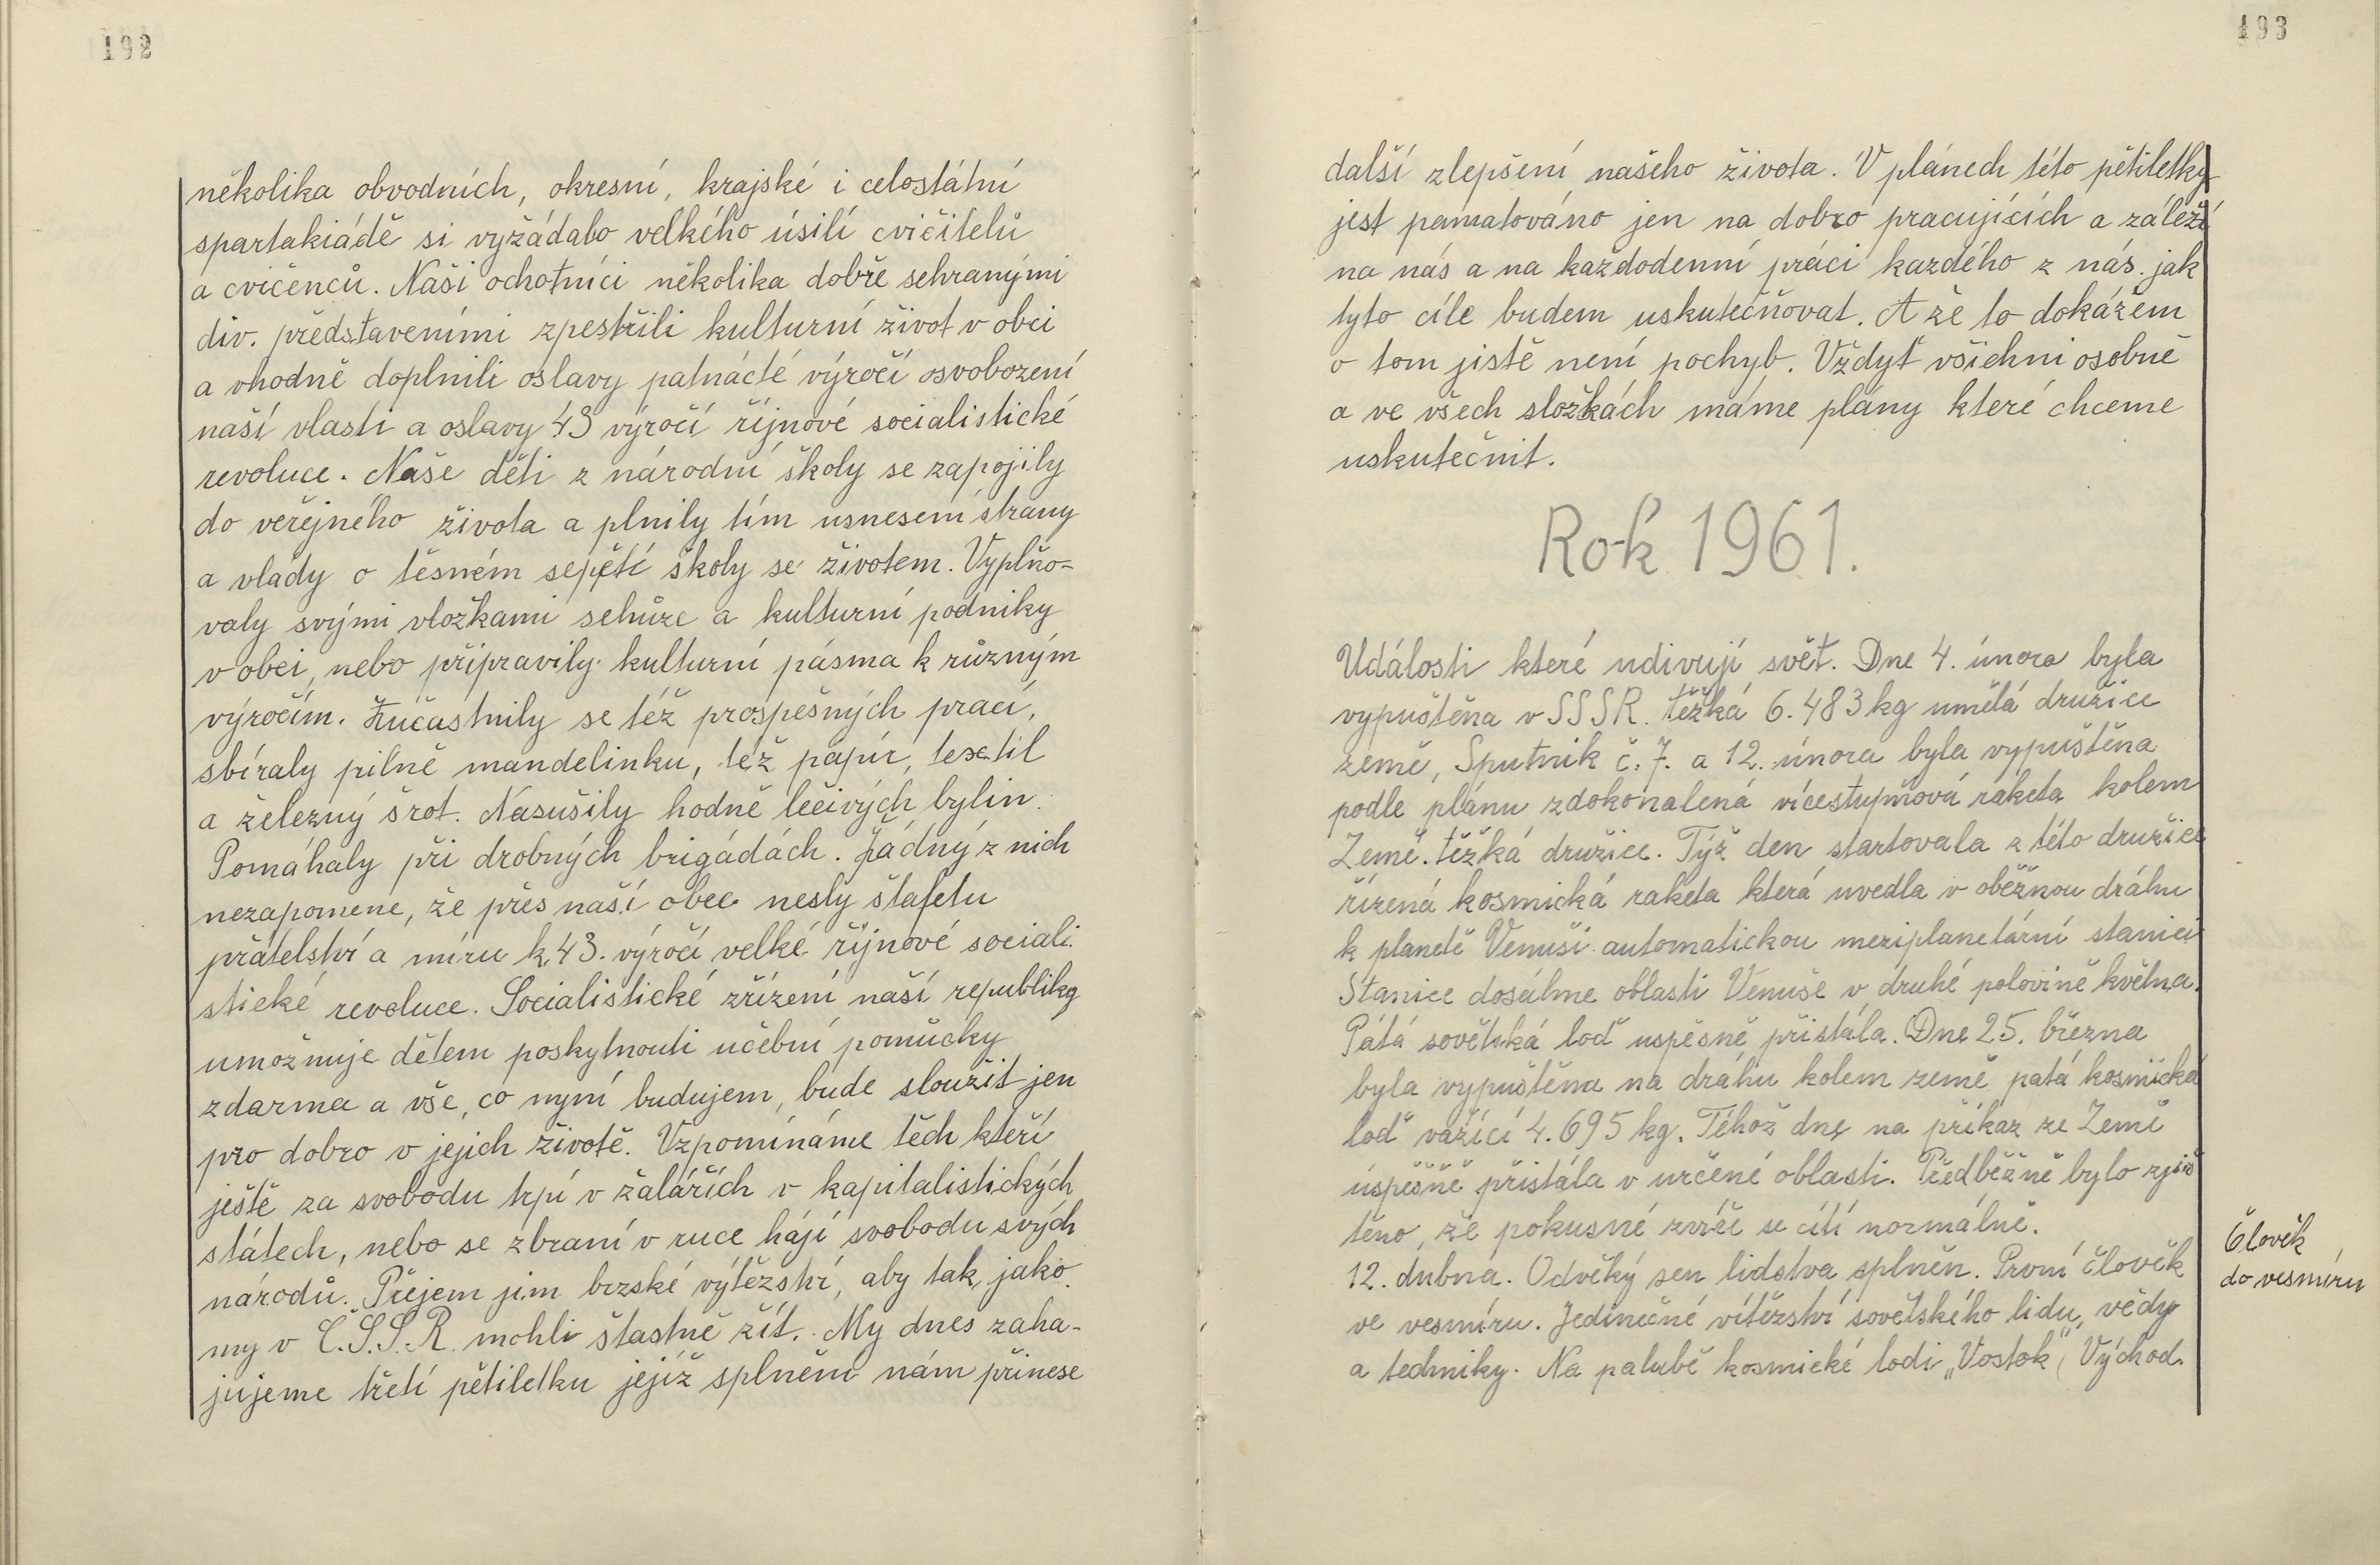 192
několika obvodních, okresní, krajské i celostátní
spartakiádě si vyžádalo velkého úsilí cvičitelů
a cvičenců. Naši ochotníci několika dobře sehranými
div. představeními zpestřili kulturní život v obci
a vhodně doplnili oslavy patnácté výročí osvobození
naší vlasti a oslavy 43 výročí říjnové socialistické
revoluce. Naše děti z národní školy se zapojily
do veřejného života a plnily tím usnesení strany
a vlády o těsném sepětí školy se životem. Vyplňo-
valy svými vložkami schůze a kulturní podniky
v obci, nebo připravily kulturní pásma k různým
výročím. Zúčastnily se též prospěšných prací,
sbíraly pilně mandelinku, též papír, textil
a železný šrot. Nasušily hodně léčivých bylin.
Pomáhaly při drobných brigádách. Žádný z nich
nezapomene, že přes naší obec nesly štafetu
přátelství a míru k 43. výročí velké říjnové sociali.
stické revoluce. Socialistické zřízení naší republiky
umožnuje dětem poskytnouti učební pomůcky
zdarma a vše, co nyní budujem, bude sloužit jen
pro dobro v jejich životě. Vzpomínáme těch kteří
ještě za svobodu trpí v žalářích v kapitalistických
státech, nebo se zbraní v ruce hájí svobodu svých
národů. Přejem jim brzské výtězství, aby tak, jako
my v Č.S.S.R. mohli štastně žít. My dnes zaha-
jujeme třetí pětiletku jejíž splnění nám přinese
193
další zlepšení našeho života. V plánech této pětiletky
jest pamatováno jen na dobro pracujících a záleží
na nás a na každodenní práci kazdého z nás. jak
tyto cíle budem uskutečňovat. A že to dokážem
o tom jistě není pochyb. Vždyť všichni osobně
a ve všech složkách máme plány které chceme
uskutečnit.
Rok 1961.
Události které udivují svět. Dne 4. února byla
vypuštěna v SSSR. těžká 6.483 kg umělá družice
země, Sputnik č. 7. a 12. února byla vypuštěna
podle plánu zdokonalená vícestupňová raketa kolem
Země. těžká družice. Týž den startovala z této družice
řízená kosmická raketa která uvedla v oběžnou dráhu
k planetě Venuši automatickou meziplanetární stanici
Stanice dosáhne oblasti Venuše v druhé polovině května.
Pátá sovětská loď uspěsně přistála. Dne 25. března
byla vypuštěna na dráhu kolem země patá kosmická
loď vážící 4.695 kg. Téhož dne na příkaz ze Země
úspěšně přistála v určené oblasti. Předběžně bylo zjiš
těno, že pokusné zvíře se cítí normálně.
12. dubna. Odvěký sen lidstva splněn. První člověk
ve vesmíru. Jedinečné vítězství sovětského lidu, vědy
a techniky. Na palubě kosmické lodi „Vostok" (Východ.
Člověk
do vesmíru